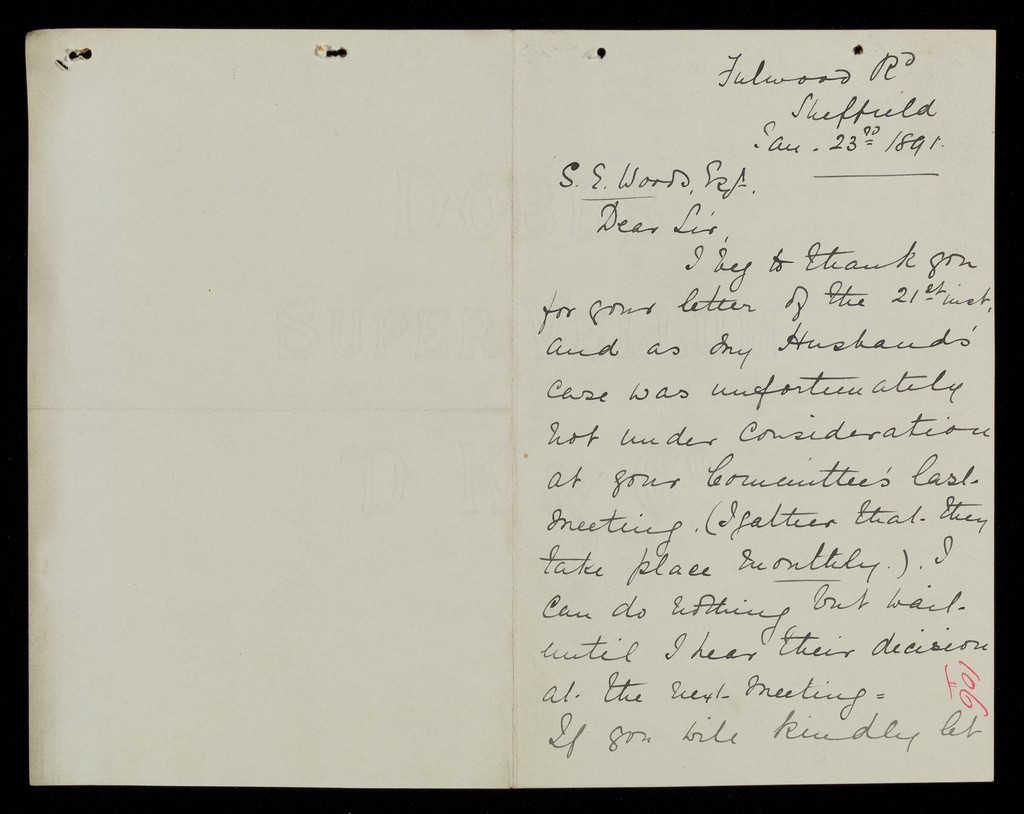 Fulwood Rd
Sheffield
Jan. 23rd 1891.
S. E. Woods, Esq.
Dear Sir,
I beg to thank you
for your letter of the 21st inst,
and as my Husband's
case was unfortunately
not under consideration
at your Committee's last
meeting. (I gather that they
take place monthly.). I
can do nothing but wait
until I hear their decision
at the next meeting =
If you will kindly let